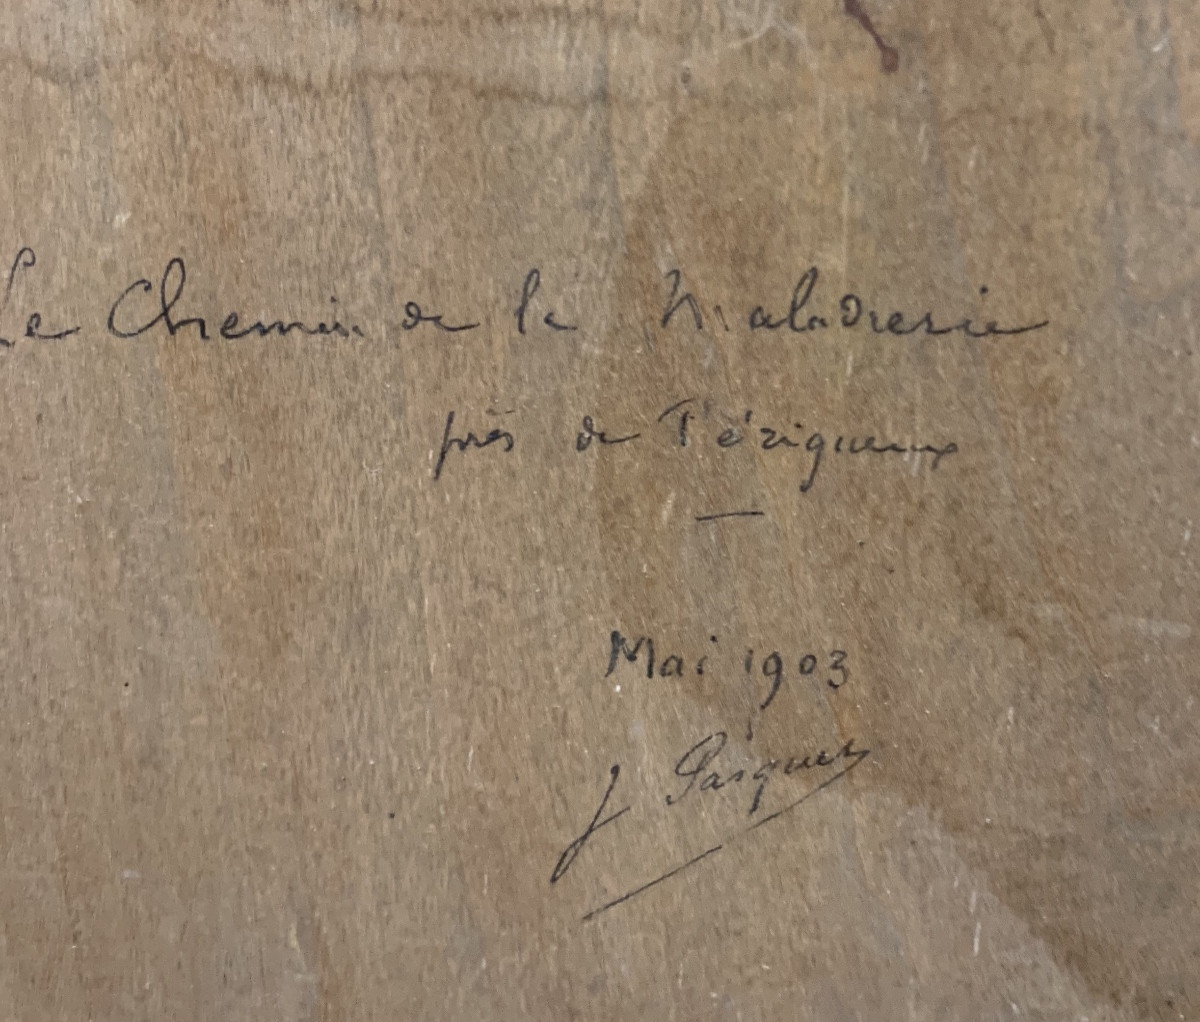 Le Chemin de la Maladrerie
près de Périgueux
—
Mai 1903
J Pasquet